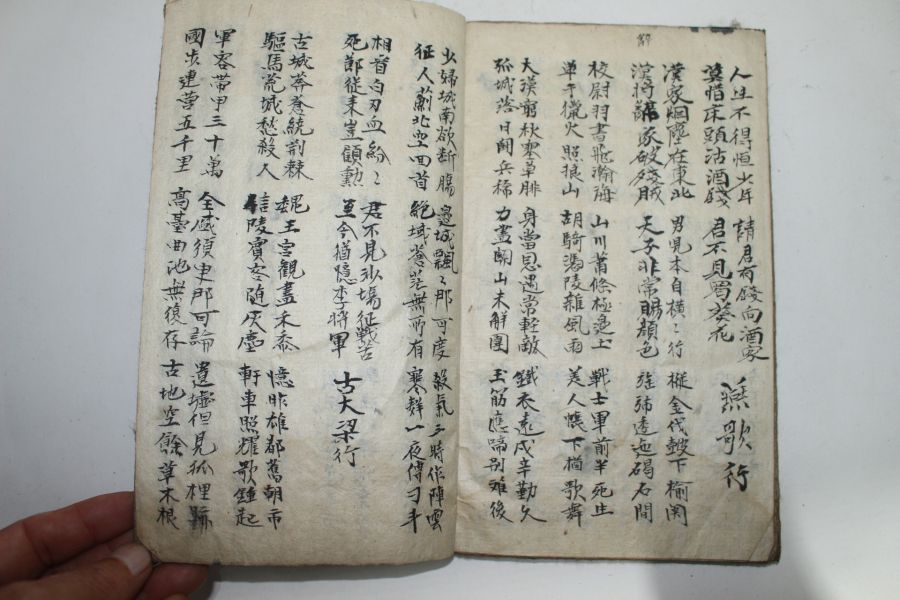 人生不得恒少年
莫惜床頭沽酒錢
請君有錢向酒家
君不見蜀葵花
燕歌行
漢家烟塵在東北
漢將辭家破殘賊
男兒本自橫〻行
天子非常賜顔色
摐金伐皷下榆関
旌斾逶迤碣石間
校尉羽書飛瀚海
單于獵火照狼山
山川蕭條極邊土
胡騎憑陵雜風雨
戰士軍前半死生
美人帳下猶歌舞
大漠窮秋塞草腓
孤城落日鬪兵稀
身當恩遇常輕敵
力盡關山未解圍
鐵衣遠戍辛勤久
玉筯應啼別離後
少婦城南欲斷膓
征人薊北空回首
邊城飄〻那可度
絶域蒼茫無所有
殺氣三時作陣雲
寒聲一夜傳刁斗
相看白刃血紛〻
死節從来豈顧勲
君不見沙場征戰苦
至今猶憶李將軍
古大梁行
古城莽蒼繞荆棘
驅馬荒城愁殺人
魏王宮觀盡禾黍
信陵賓客随灰塵
憶昨雄都舊朝市
軒車照耀歌鍾起
軍容帶甲三十萬
國步連營五千里
全盛須臾那可論
高臺曲池無復存
遺墟但見狐狸跡
古地空餘草木根